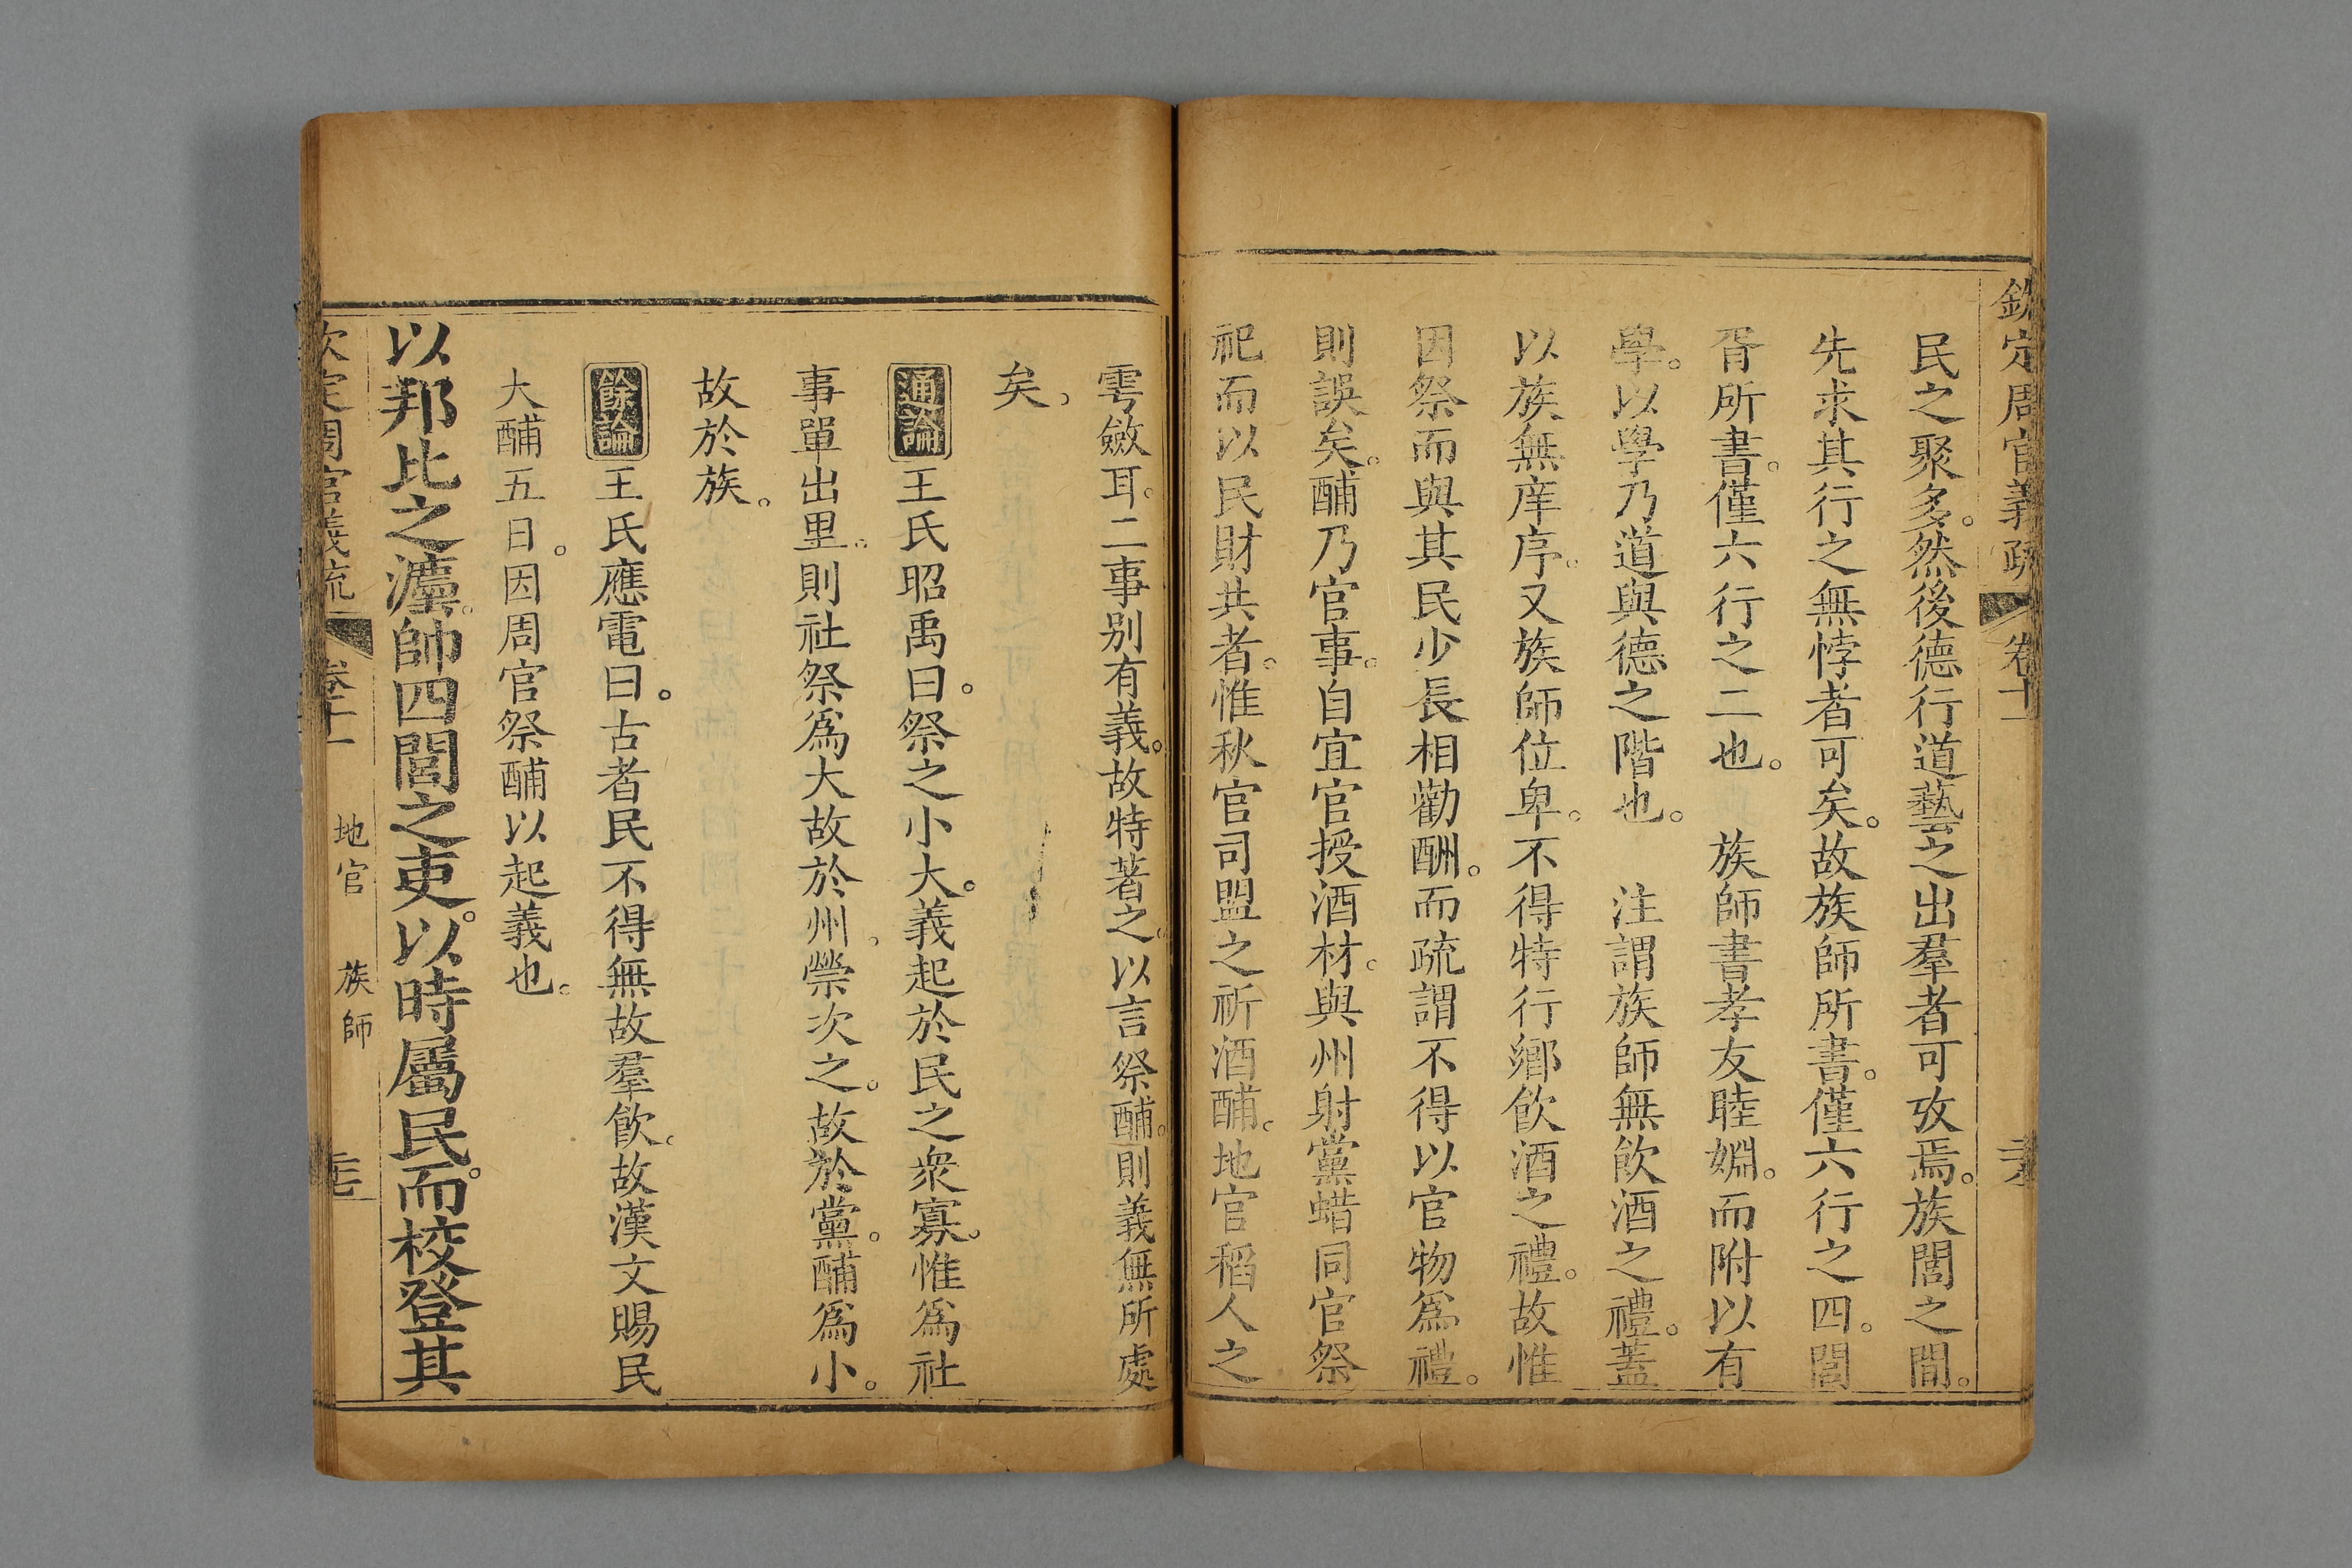 欽定周官義疏 卷十一
民之聚多。然後德行道藝之出羣者可攷焉。族閭之間。
先求其行之無悖者可矣。故族師所書。僅六行之四。閭
胥所書。僅六行之二也。 族師書孝友睦婣。而附以有
學。以學乃道與德之階也。 注謂族師無飲酒之禮。蓋
以族無庠序。又族師位卑。不得特行鄉飲酒之禮。故惟
因祭而與其民少長相勸酬。而疏謂不得以官物爲禮。
則誤矣。酺乃官事。自宜官授酒材。與州射黨蜡同官祭
祀而以民財共者。惟秋官司盟之祈酒酺。地官稻人之
雩斂耳。二事别有義。故特著之。以言祭酺。則義無所處
矣。
通論 王氏昭禹曰。祭之小大。義起於民之衆寡。惟爲社
事單出里。則社祭爲大故於州。禜次之。故於黨。酺爲小。
故於族。
餘論 王氏應電曰。古者民不得無故羣飲。故漢文賜民
大酺五日。因周官祭酺以起義也。
以邦比之灋。帥四閭之吏。以時屬民。而校登其
欽定周官義疏 卷十一 地官 族師 二七